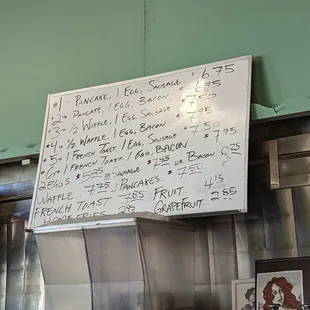 #1 - PANCAKE, 1 EGG, SAUSAGE 6.75
#2 - PANCAKE, 1 EGG, BACON 6.95
#3 - ½ WAFFLE, 1 EGG, SAUSAGE 7.50
#4 - ½ WAFFLE, 1 EGG, BACON 7.95
#5 - 1 FRENCH TOAST, 1 EGG, SAUSAGE 7.50
#6 - 1 FRENCH TOAST, 1 EGG, BACON $7.95
2 EGGS $5.25 SAUSAGE $7.45 OR BACON
WAFFLE 7.75 PANCAKES $7.50
FRENCH TOAST 7.85 FRUIT 4.15
HOMEFRIES 2.85 GRAPEFRUIT 2.85